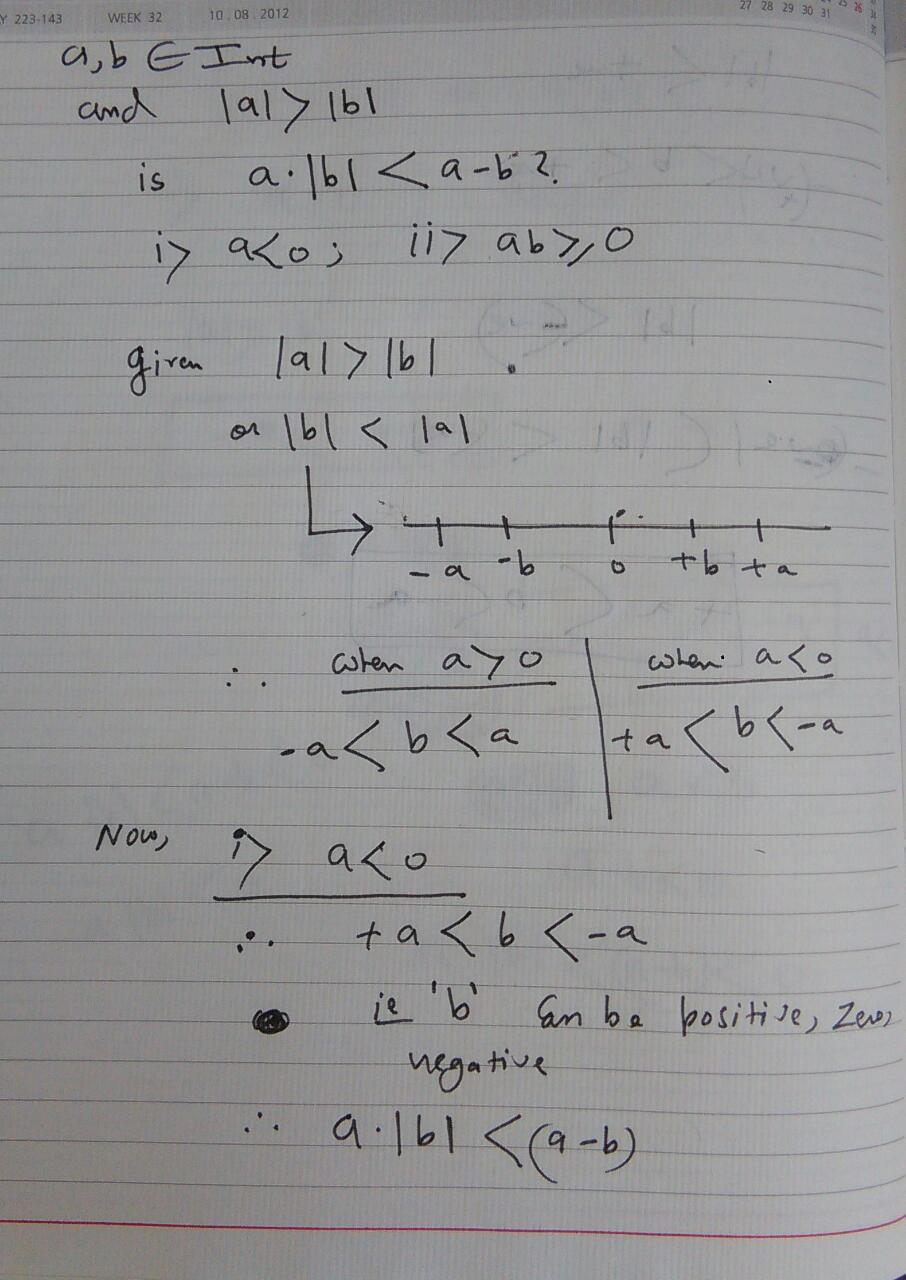 Y 223-143 WEEK 32 10.08.2012 27 28 29 30 31 25 26
a,b ∈ Int
and |a| > |b|
is a·|b| < a-b?
i> a<0; ii> ab ≥ 0
given |a| > |b|
or |b| < |a|
-a -b 0 +b +a
∴ when a>0 when a<0
-a < b < a +a < b < -a
Now, i> a<0
∴ +a < b < -a
ie 'b' can be positive, zero,
negative
∴ a·|b| < (a-b)